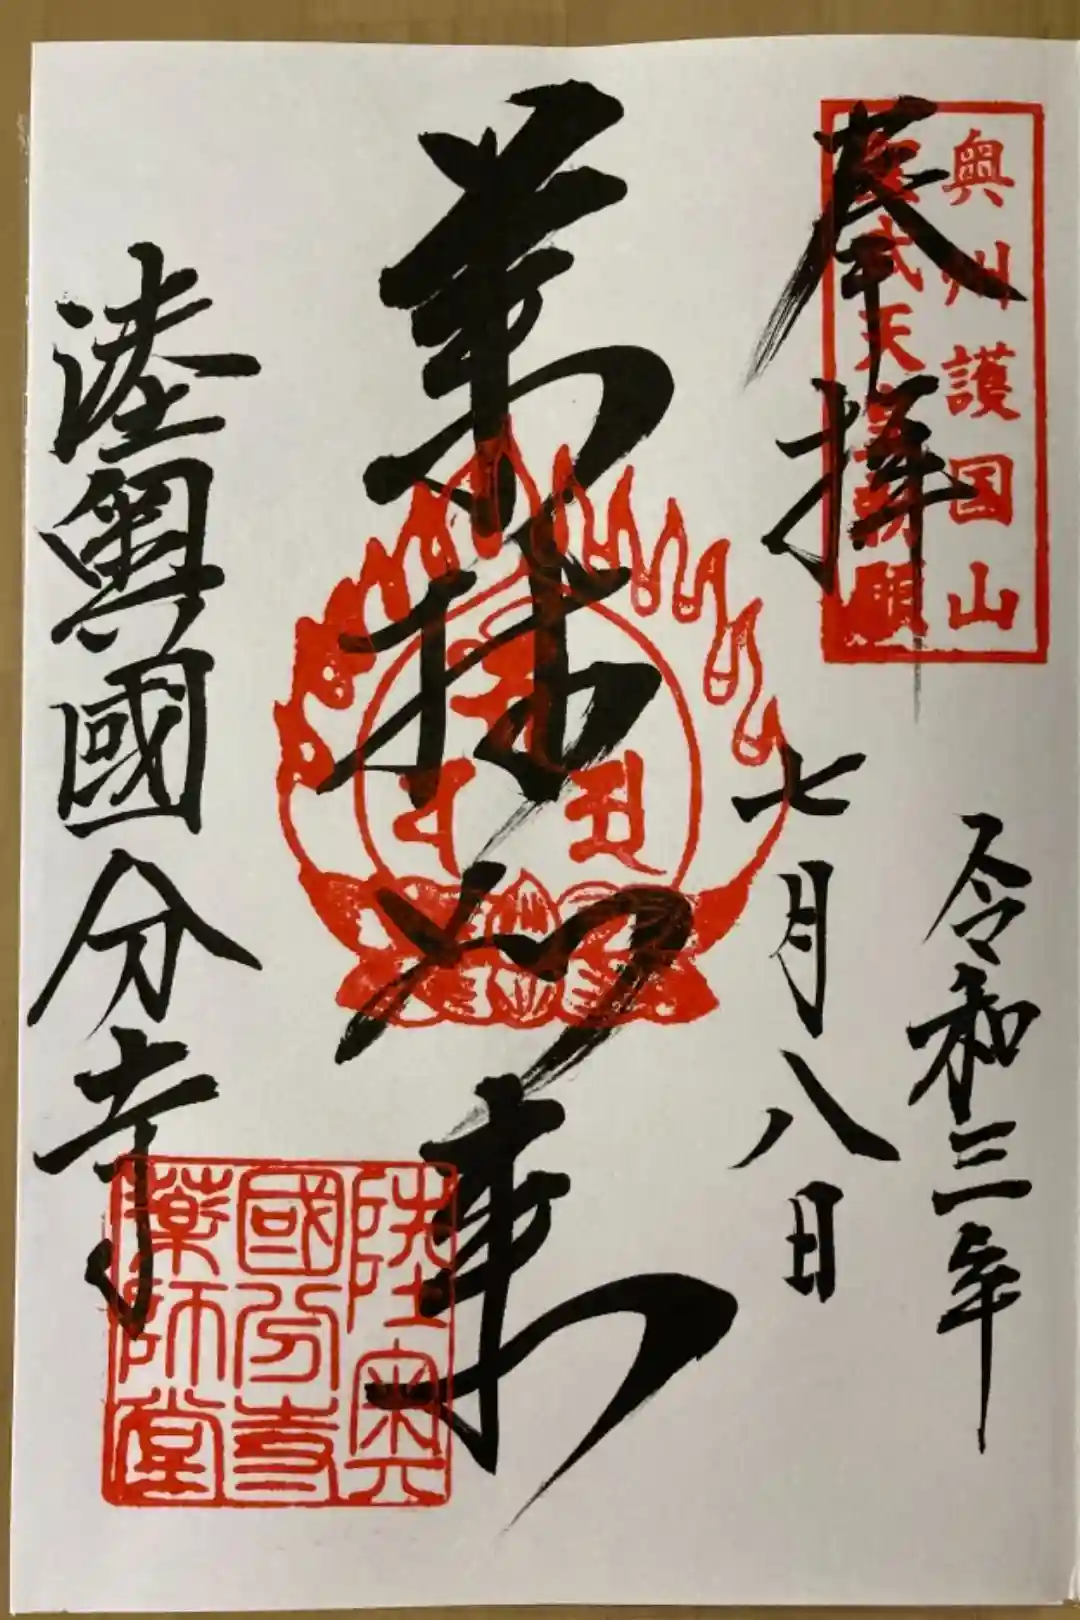 奥州護国山
聖武天皇勅願
奉拝
令和三年
七月八日
薬師如来
陸奥國分寺
陸奥
國分寺
薬師堂